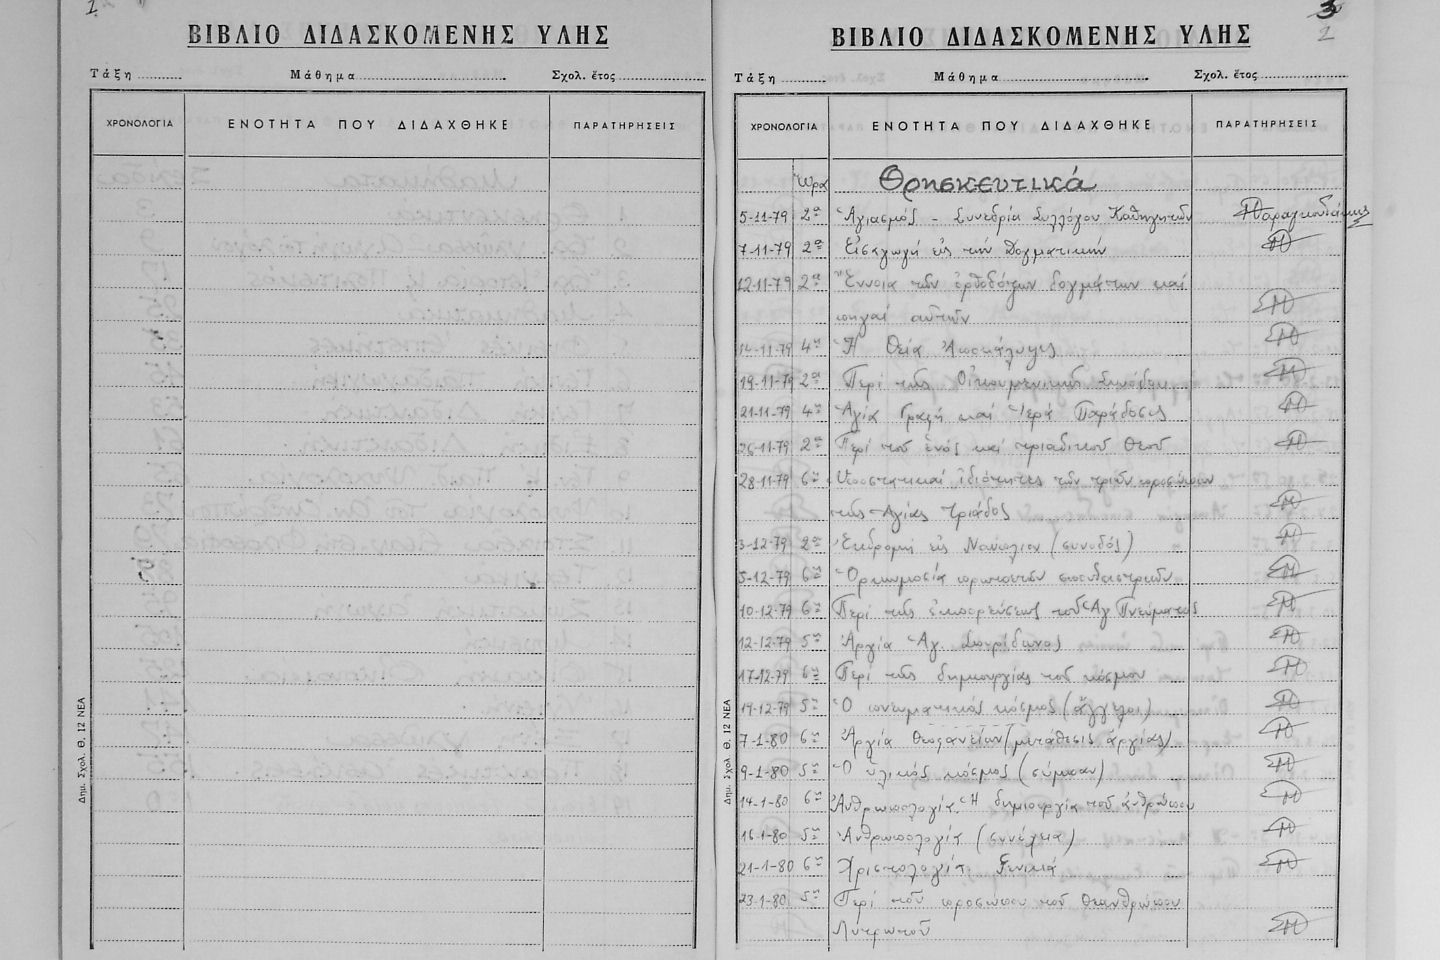 ΒΙΒΛΙΟ ΔΙΔΑΣΚΟΜΕΝΗΣ ΥΛΗΣ
Τάξη Μάθημα Σχολ. ἔτος
ΧΡΟΝΟΛΟΓΙΑ ΕΝΟΤΗΤΑ ΠΟΥ ΔΙΔΑΧΘΗΚΕ ΠΑΡΑΤΗΡΗΣΕΙΣ
Δημ. Σχολ. Θ. 12 ΝΕΑ
3
2
ΒΙΒΛΙΟ ΔΙΔΑΣΚΟΜΕΝΗΣ ΥΛΗΣ
Τάξη Μάθημα Σχολ. ἔτος
ΧΡΟΝΟΛΟΓΙΑ ΕΝΟΤΗΤΑ ΠΟΥ ΔΙΔΑΧΘΗΚΕ ΠΑΡΑΤΗΡΗΣΕΙΣ
Ὥρα Θρησκευτικά
5-11-79 2α Ἁγιασμός - Συνεδρία Συλλόγου Καθηγητῶν
7-11-79 2α Εἰσαγωγή εἰς τήν Δογματικήν
12-11-79 2α Ἔννοια τῶν ὀρθοδόξων δογμάτων καί
πηγαί αὐτῶν
14-11-79 4η Ἡ Θεία Ἀποκάλυψις
19-11-79 2α Περί τῆς Οἰκουμενικῆς Συνόδου
21-11-79 4η Ἁγία Γραφή καί Ἱερά Παράδοσις
26-11-79 2α Περί τοῦ ἑνός καί τριαδικοῦ Θεοῦ
28-11-79 6η Ὑποστατικαί ἰδιότητες τῶν τριῶν προσώπων
τῆς Ἁγίας Τριάδος
3-12-79 2α Ἐκδρομή εἰς Ναύπλιον (συνοδός)
5-12-79 6η Ὁρκωμοσία πρωτοετῶν σπουδαστριῶν
10-12-79 6η Περί τῆς ἐκπορεύσεως τοῦ Ἁγ Πνεύματος
12-12-79 5η Ἀργία Ἁγ. Σπυρίδωνος
17-12-79 6η Περί τῆς δημιουργίας τοῦ κόσμου
19-12-79 5η Ὁ πνευματικός κόσμος (ἄγγελοι)
7-1-80 6η Ἀργία Θεοφανείων (μετάθεσις ἀργίας)
9-1-80 5η Ὁ ὑλικός κόσμος (σύμπαν)
14-1-80 6η Ἀνθρωπολογία. Ἡ δημιουργία τοῦ ἀνθρώπου
16-1-80 5η Ἀνθρωπολογία (συνέχεια)
21-1-80 6η Χριστολογία. Γενικά
23-1-80 5η Περί τοῦ προσώπου τοῦ Θεανθρώπου
Λυτρωτοῦ
Δημ. Σχολ. Θ. 12 ΝΕΑ